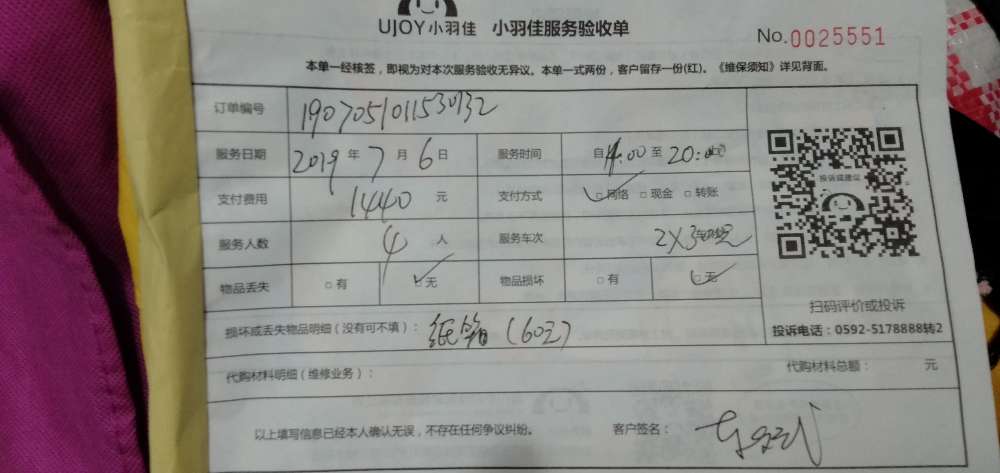 UJOY小羽佳 小羽佳服务验收单
No.0025551
本单一经核签，即视为对本次服务验收无异议。本单一式两份，客户留存一份(红)。《维保须知》详见背面。
订单编号 1907051011530132
服务日期 2019 年 7 月 6 日 服务时间 自 14:00 至 20:00
投诉或建议
支付费用 1440 元 支付方式 ☑网络 □现金 □转账
服务人数 4 人 服务车次 2X3
物品丢失 □有 ☑无 物品损坏 □有 ☑无
扫码评价或投诉
损坏或丢失物品明细（没有可不填）： 纸箱（60元）
投诉电话：0592-5178888转2
代购材料明细（维修业务）： 代购材料总额： 元
以上填写信息已经本人确认无误，不存在任何争议纠纷。 客户签名：